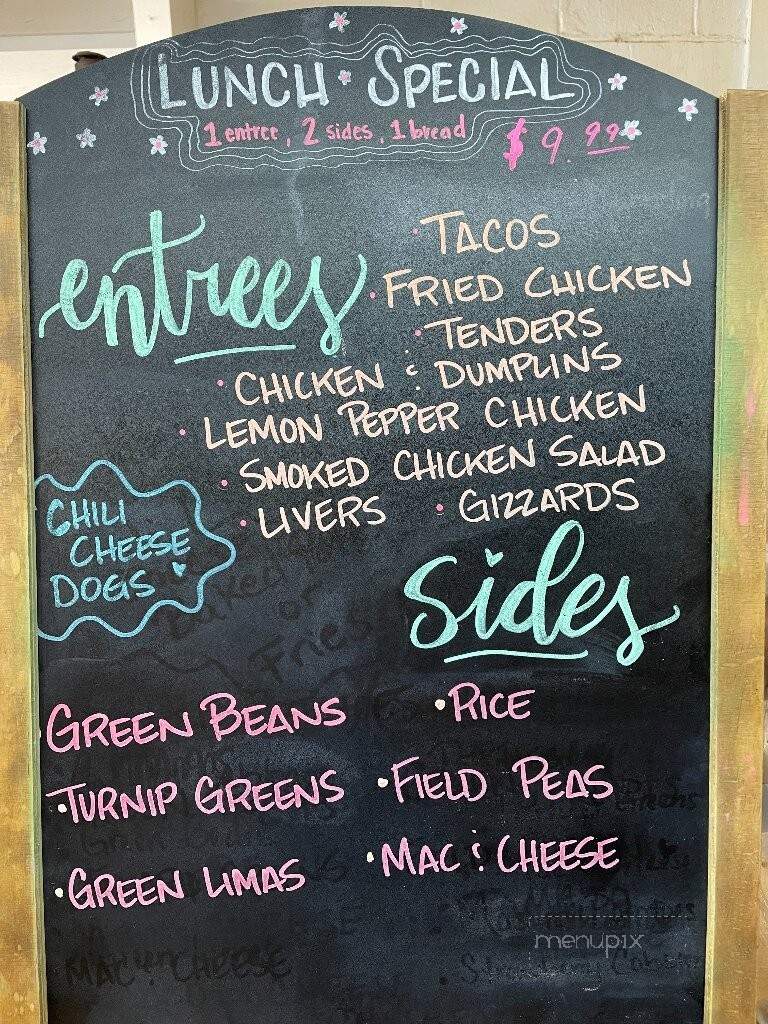 LUNCH SPECIAL
1 entree, 2 sides, 1 bread $9.99
entrees
• TACOS
• FRIED CHICKEN
• TENDERS
• CHICKEN & DUMPLINS
• LEMON PEPPER CHICKEN
• SMOKED CHICKEN SALAD
• LIVERS • GIZZARDS
CHILI
CHEESE
DOGS
Baked
or
Fries
sides
• GREEN BEANS • RICE
• TURNIP GREENS • FIELD PEAS
• GREEN LIMAS • MAC & CHEESE
MAC & CHEESE
menupix